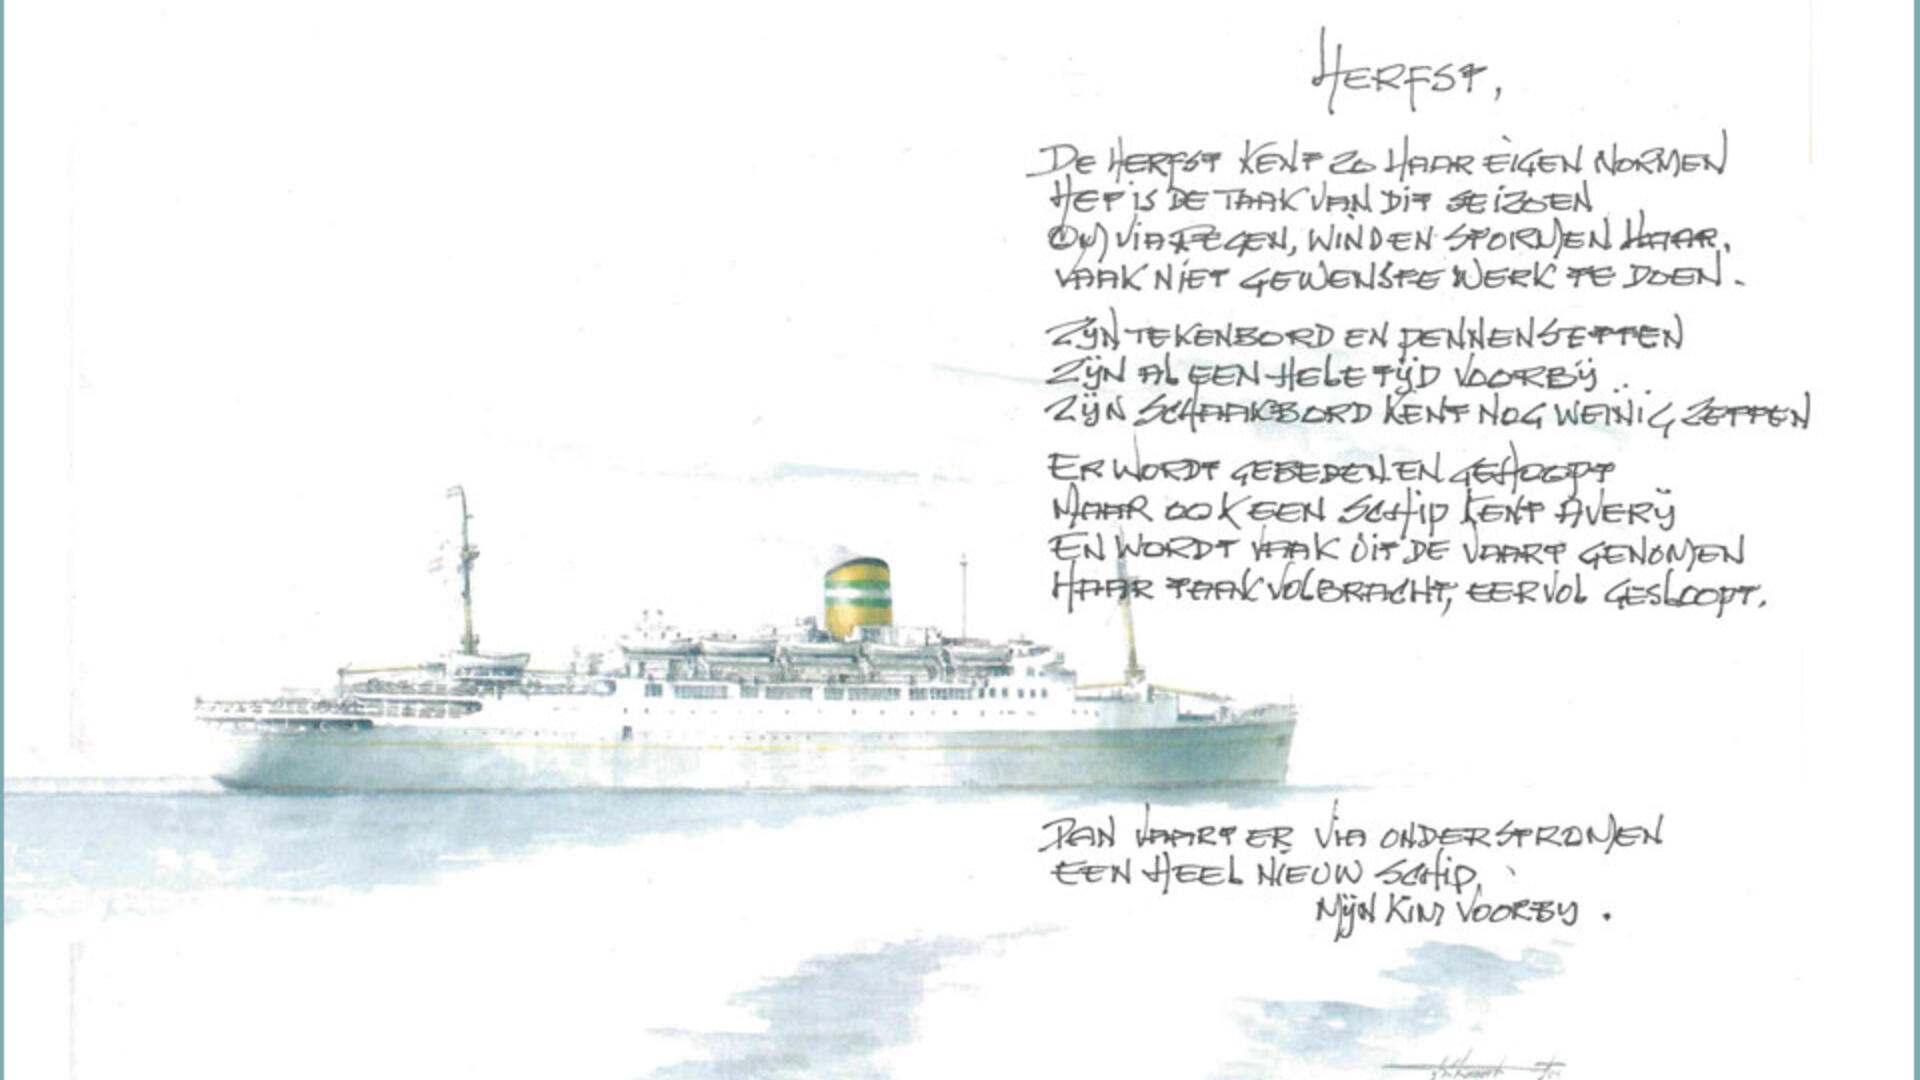 HERFST,
DE HERFST KENT ZO HAAR EIGEN NORMEN
HET IS DE TAAK VAN DIT SEIZOEN
OM VIA REGEN, WIND EN STORMEN HAAR,
VAAK NIET GEWENSTE WERK TE DOEN.
ZIJN TEKENBORD EN PENNENSETTEN
ZIJN AL EEN HELE TIJD VOORBIJ
ZIJN SCHAAKBORD KENT NOG WEINIG ZETTEN
ER WORDT GEBEDEN EN GEHOOPT
MAAR OOK EEN SCHIP KENT AVERIJ
EN WORDT VAAK UIT DE VAART GENOMEN
HAAR TAAK VOLBRACHT, EERVOL GESLOOPT.
DAN VAART ER VIA ONDERSTROMEN
EEN HEEL NIEUW SCHIP,
MIJN KIM VOORBIJ.